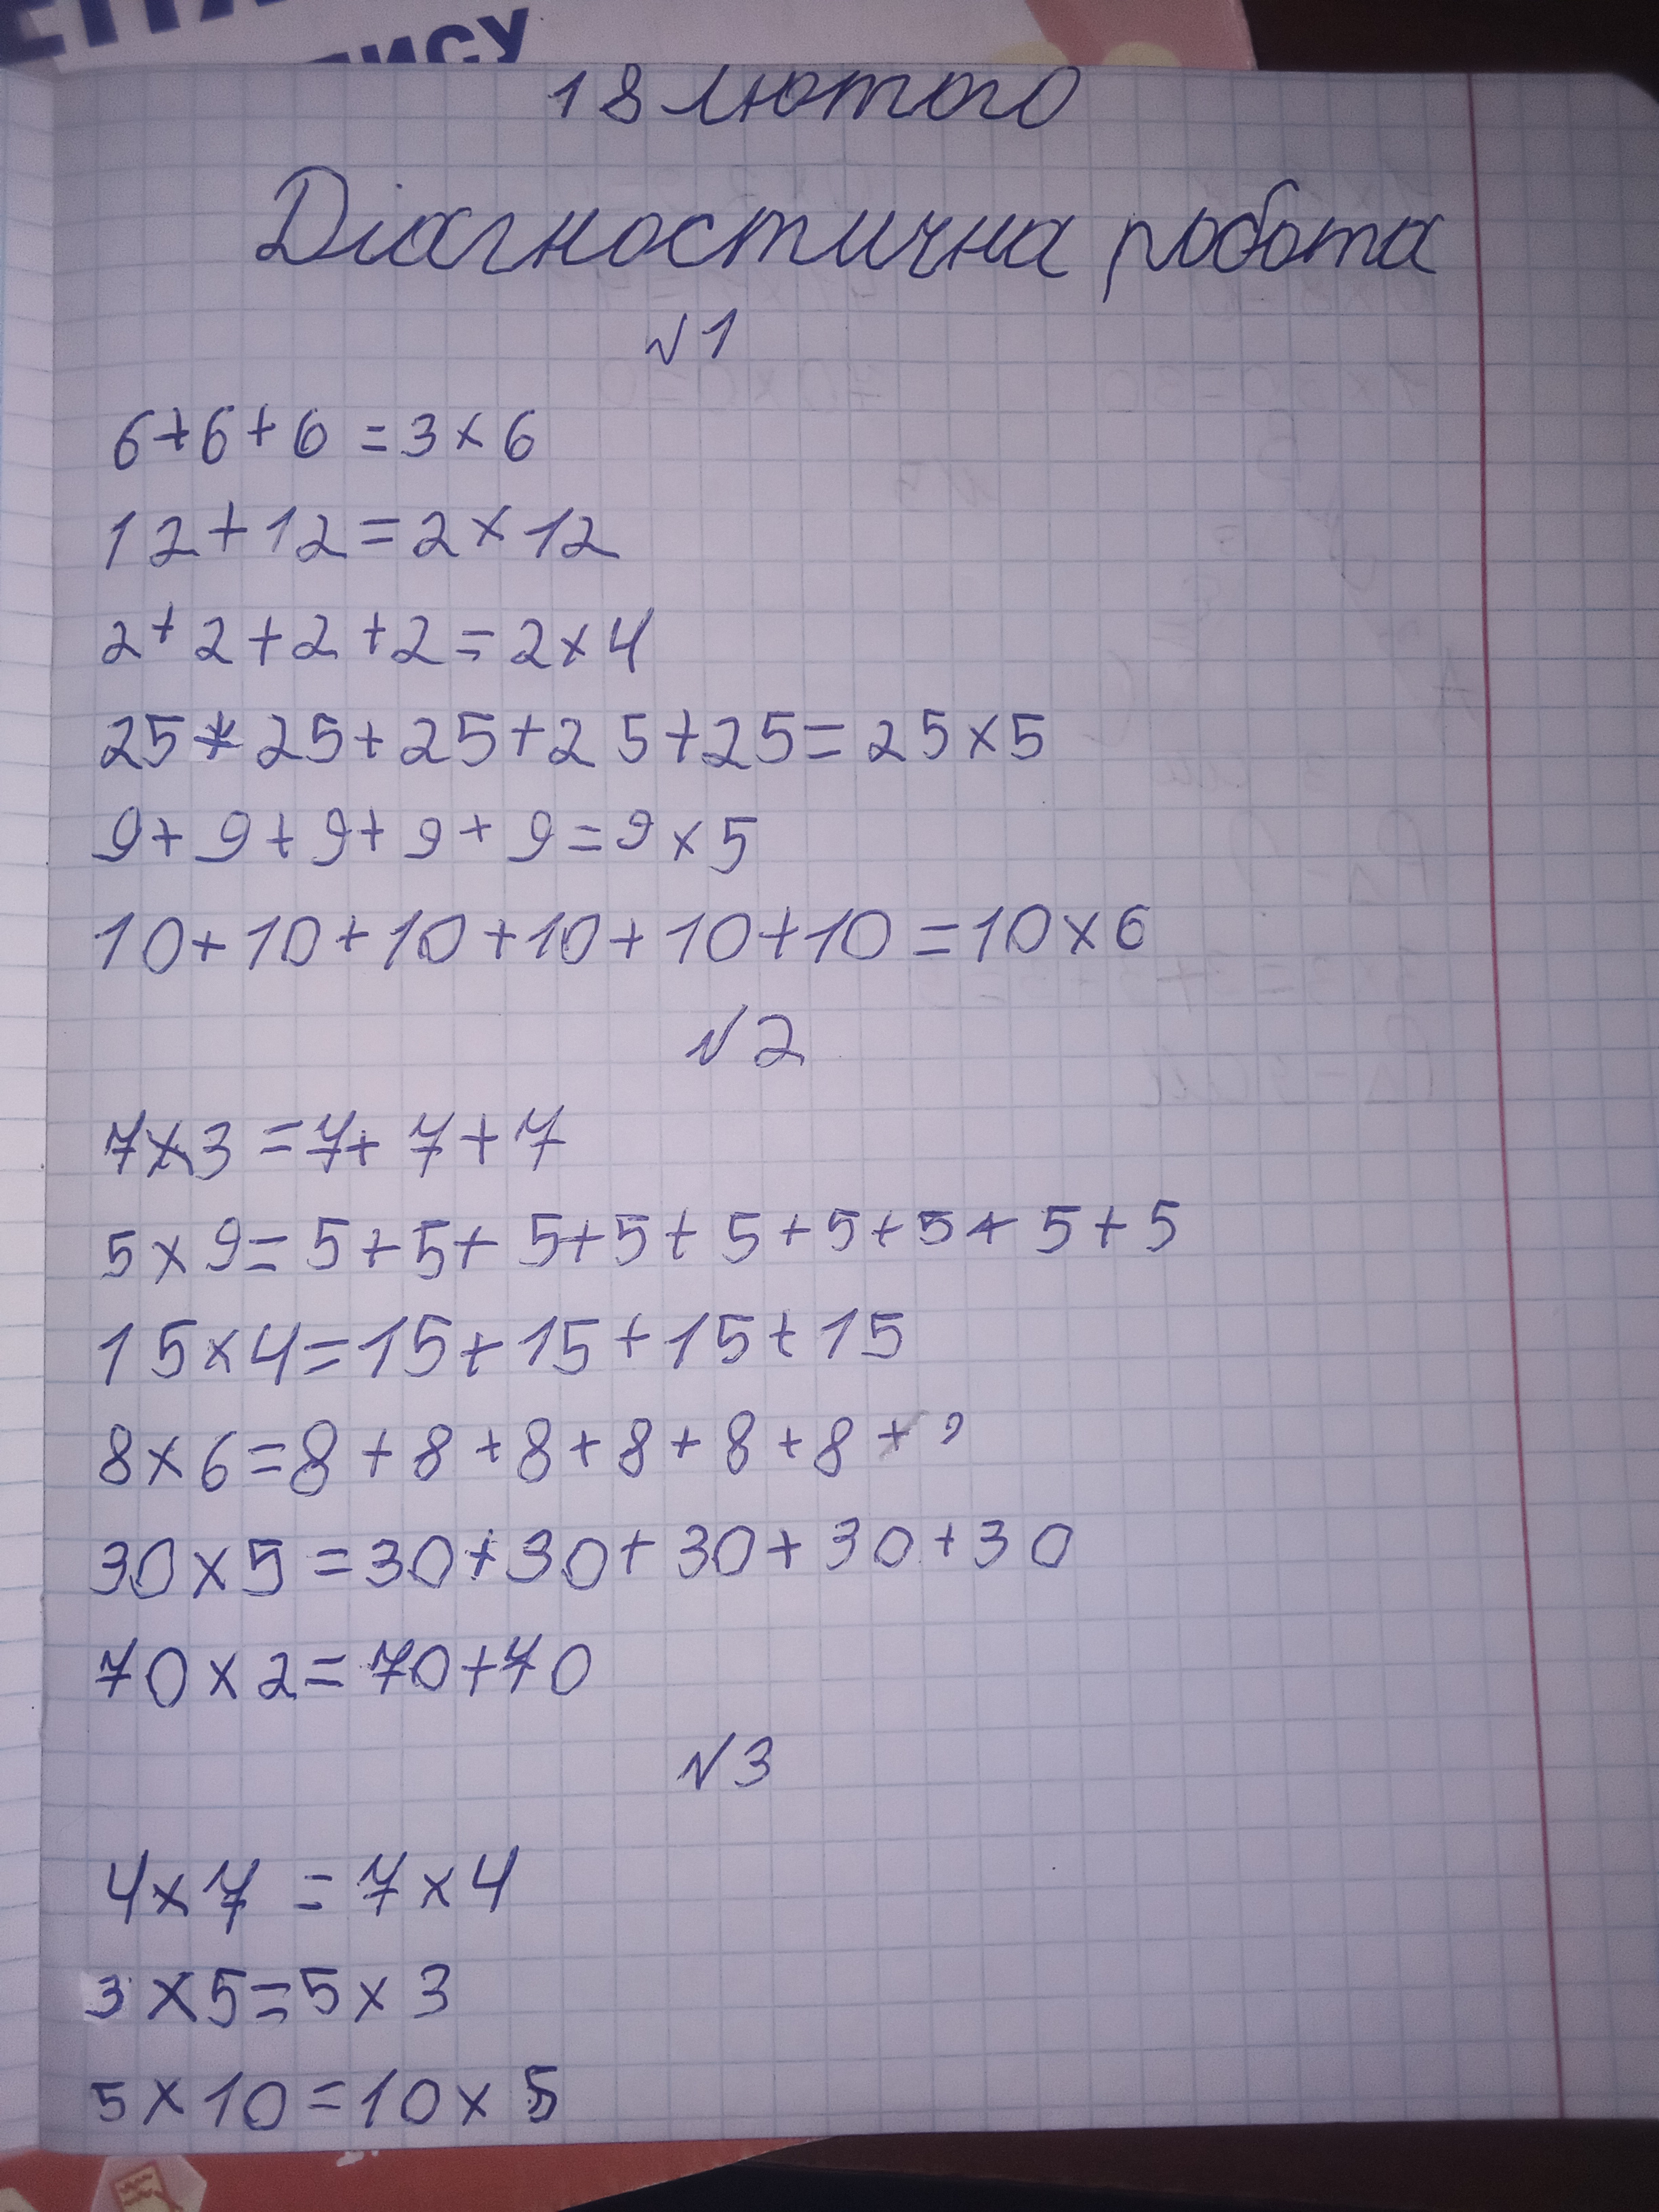 ПИСУ
18 лютого
Діагностична робота
№1
6+6+6=3×6
12+12=2×12
2+2+2+2=2×4
25+25+25+25+25=25×5
9+9+9+9+9=9×5
10+10+10+10+10+10=10×6
№2
7×3=7+7+7
5×9=5+5+5+5+5+5+5+5+5
15×4=15+15+15+15
8×6=8+8+8+8+8+8+
30×5=30+30+30+30+30
70×2=70+70
№3
4×7=7×4
3×5=5×3
5×10=10×5